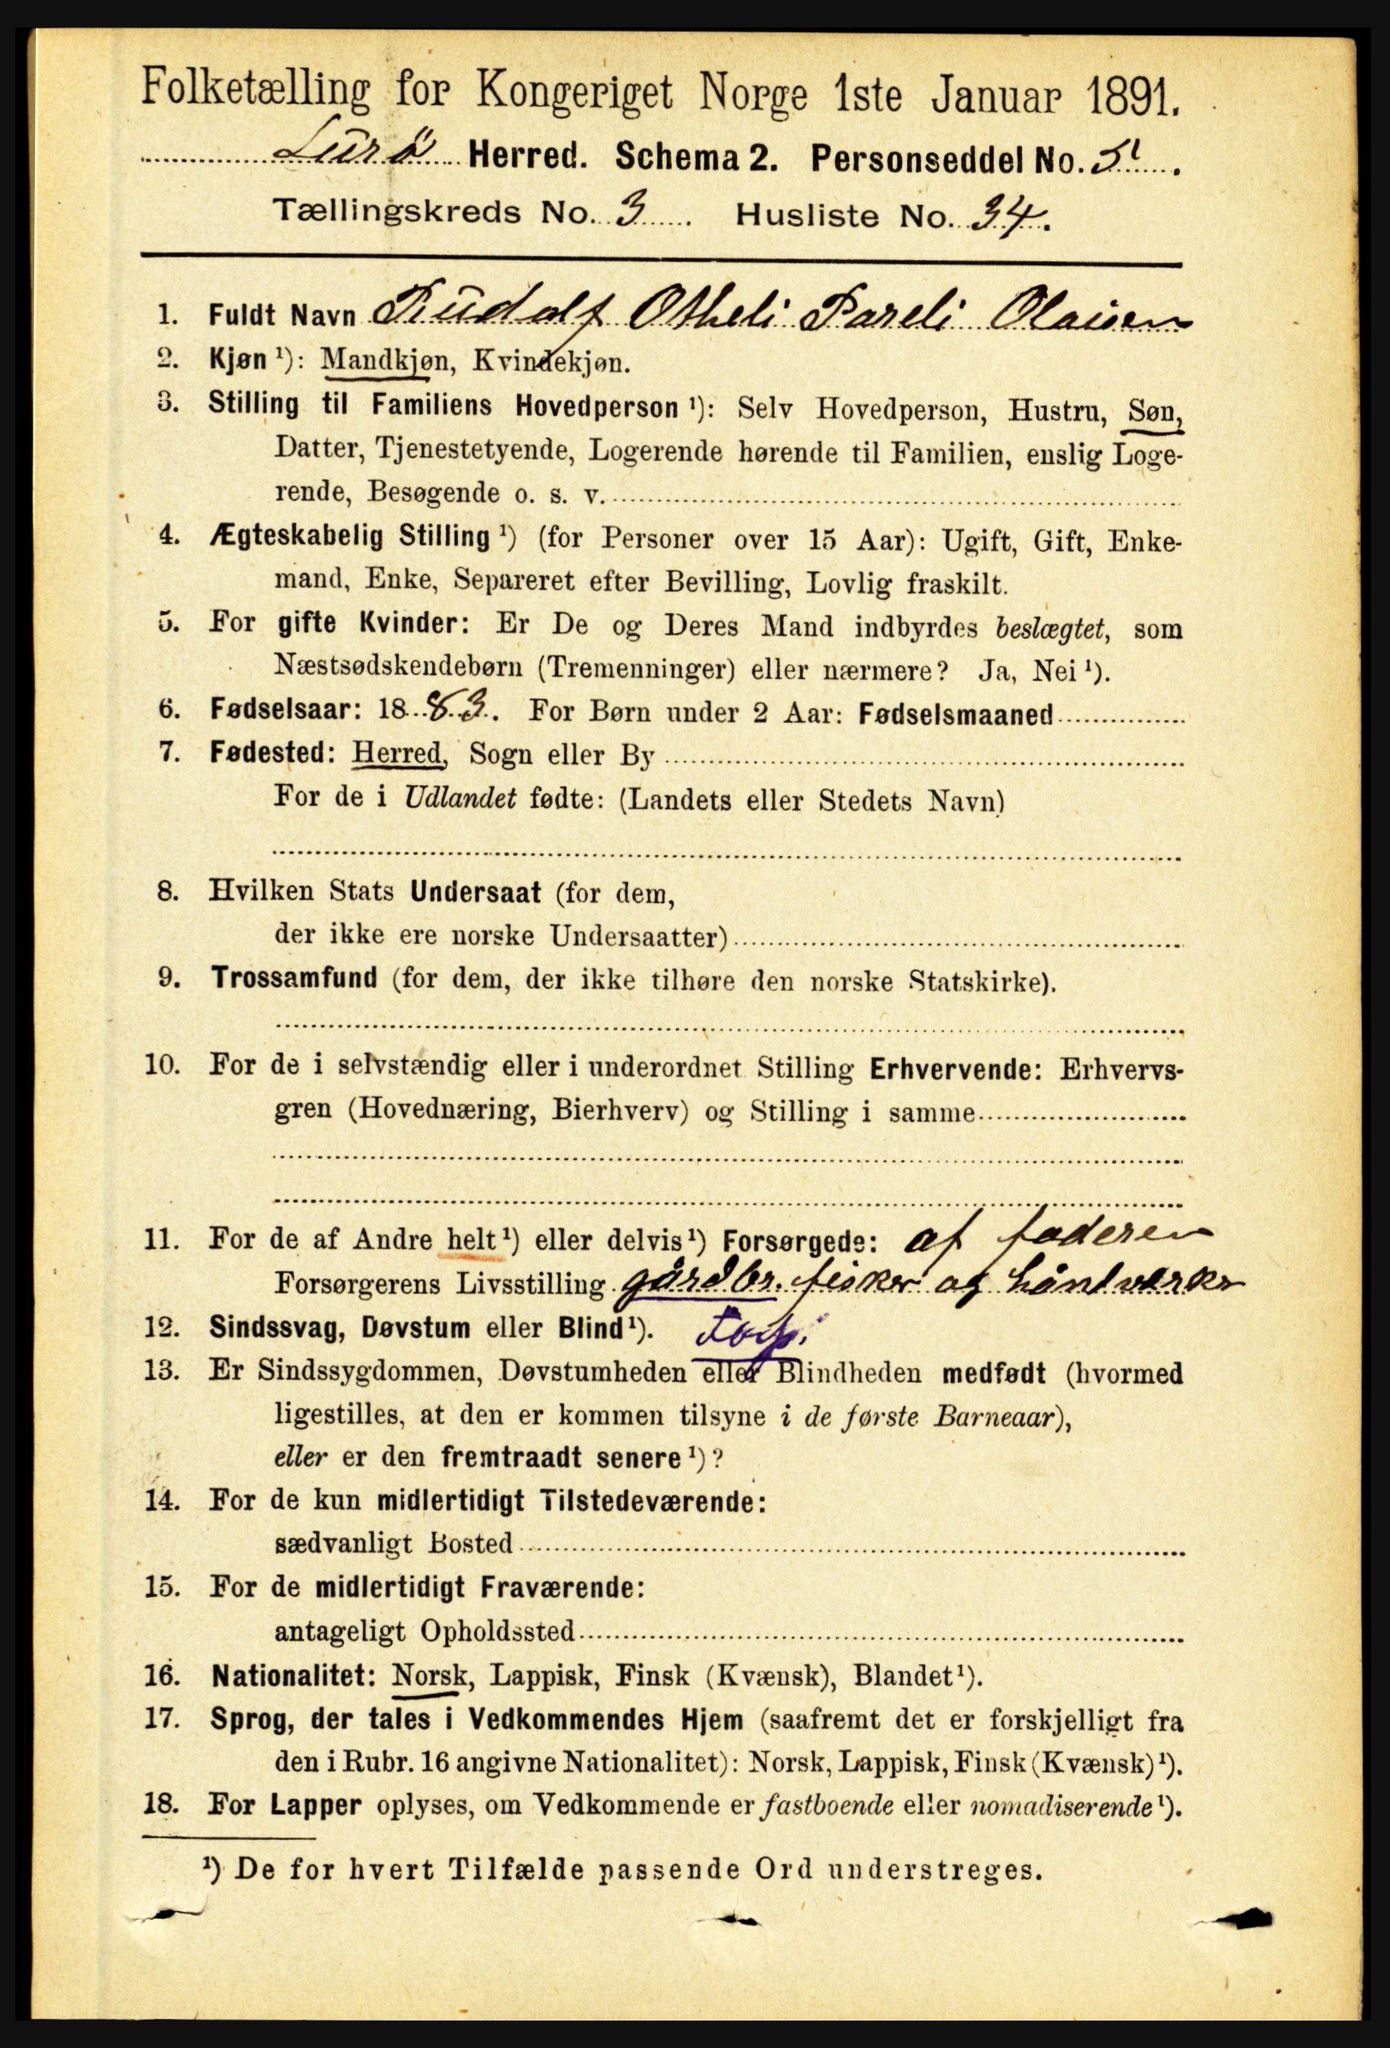 Folketælling for Kongeriget Norge 1ste Januar 1891.
Lurø Herred. Schema 2. Personseddel No. 5.
Tællingskreds No. 3. Husliste No. 34.
1. Fuldt Navn Rudolf Otheli Pareli Olaisen
2. Kjøn ¹): Mandkjøn, Kvindekjøn.
3. Stilling til Familiens Hovedperson ¹): Selv Hovedperson, Hustru, Søn,
Datter, Tjenestetyende, Logerende hørende til Familien, enslig Loge-
rende, Besøgende o. s. v.
4. Ægteskabelig Stilling ¹) (for Personer over 15 Aar): Ugift, Gift, Enke-
mand, Enke, Separeret efter Bevilling, Lovlig fraskilt.
5. For gifte Kvinder: Er De og Deres Mand indbyrdes beslægtet, som
Næstsødskendebørn (Tremenninger) eller nærmere? Ja, Nei ¹).
6. Fødselsaar: 1883. For Børn under 2 Aar: Fødselsmaaned
7. Fødested: Herred, Sogn eller By
For de i Udlandet fødte: (Landets eller Stedets Navn)
8. Hvilken Stats Undersaat (for dem,
der ikke ere norske Undersaatter)
9. Trossamfund (for dem, der ikke tilhøre den norske Statskirke).
10. For de i selvstændig eller i underordnet Stilling Erhvervende: Erhvervs-
gren (Hovednæring, Bierhverv) og Stilling i samme
11. For de af Andre helt ¹) eller delvis ¹) Forsørgede: af faderen
Forsørgerens Livsstilling gårdbr. fisker og håndværker
12. Sindssvag, Døvstum eller Blind ¹).
13. Er Sindssygdommen, Døvstumheden eller Blindheden medfødt (hvormed
ligestilles, at den er kommen tilsyne i de første Barneaar),
eller er den fremtraadt senere ¹)?
14. For de kun midlertidigt Tilstedeværende:
sædvanligt Bosted
15. For de midlertidigt Fraværende:
antageligt Opholdssted
16. Nationalitet: Norsk, Lappisk, Finsk (Kvænsk), Blandet ¹).
17. Sprog, der tales i Vedkommendes Hjem (saafremt det er forskjelligt fra
den i Rubr. 16 angivne Nationalitet): Norsk, Lappisk, Finsk (Kvænsk) ¹).
18. For Lapper oplyses, om Vedkommende er fastboende eller nomadiserende ¹).
¹) De for hvert Tilfælde passende Ord understreges.